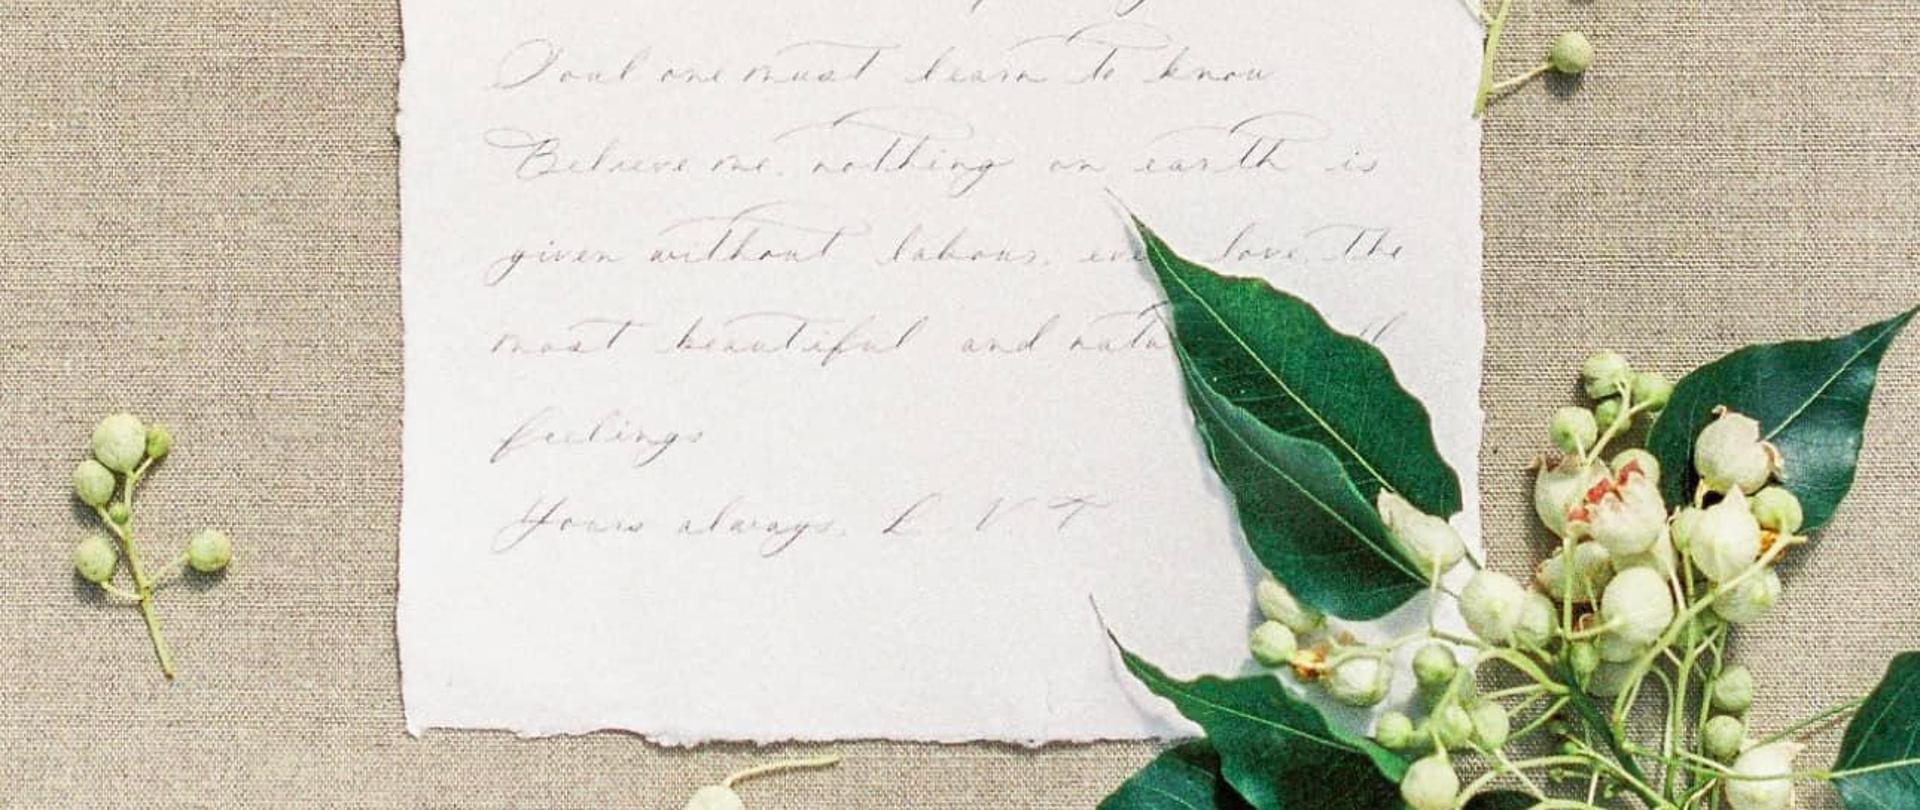 Soul one must learn to know
Believe me, nothing on earth is
given without labour, even love, the
most beautiful and natural of all
feelings
Yours always, L. V. T